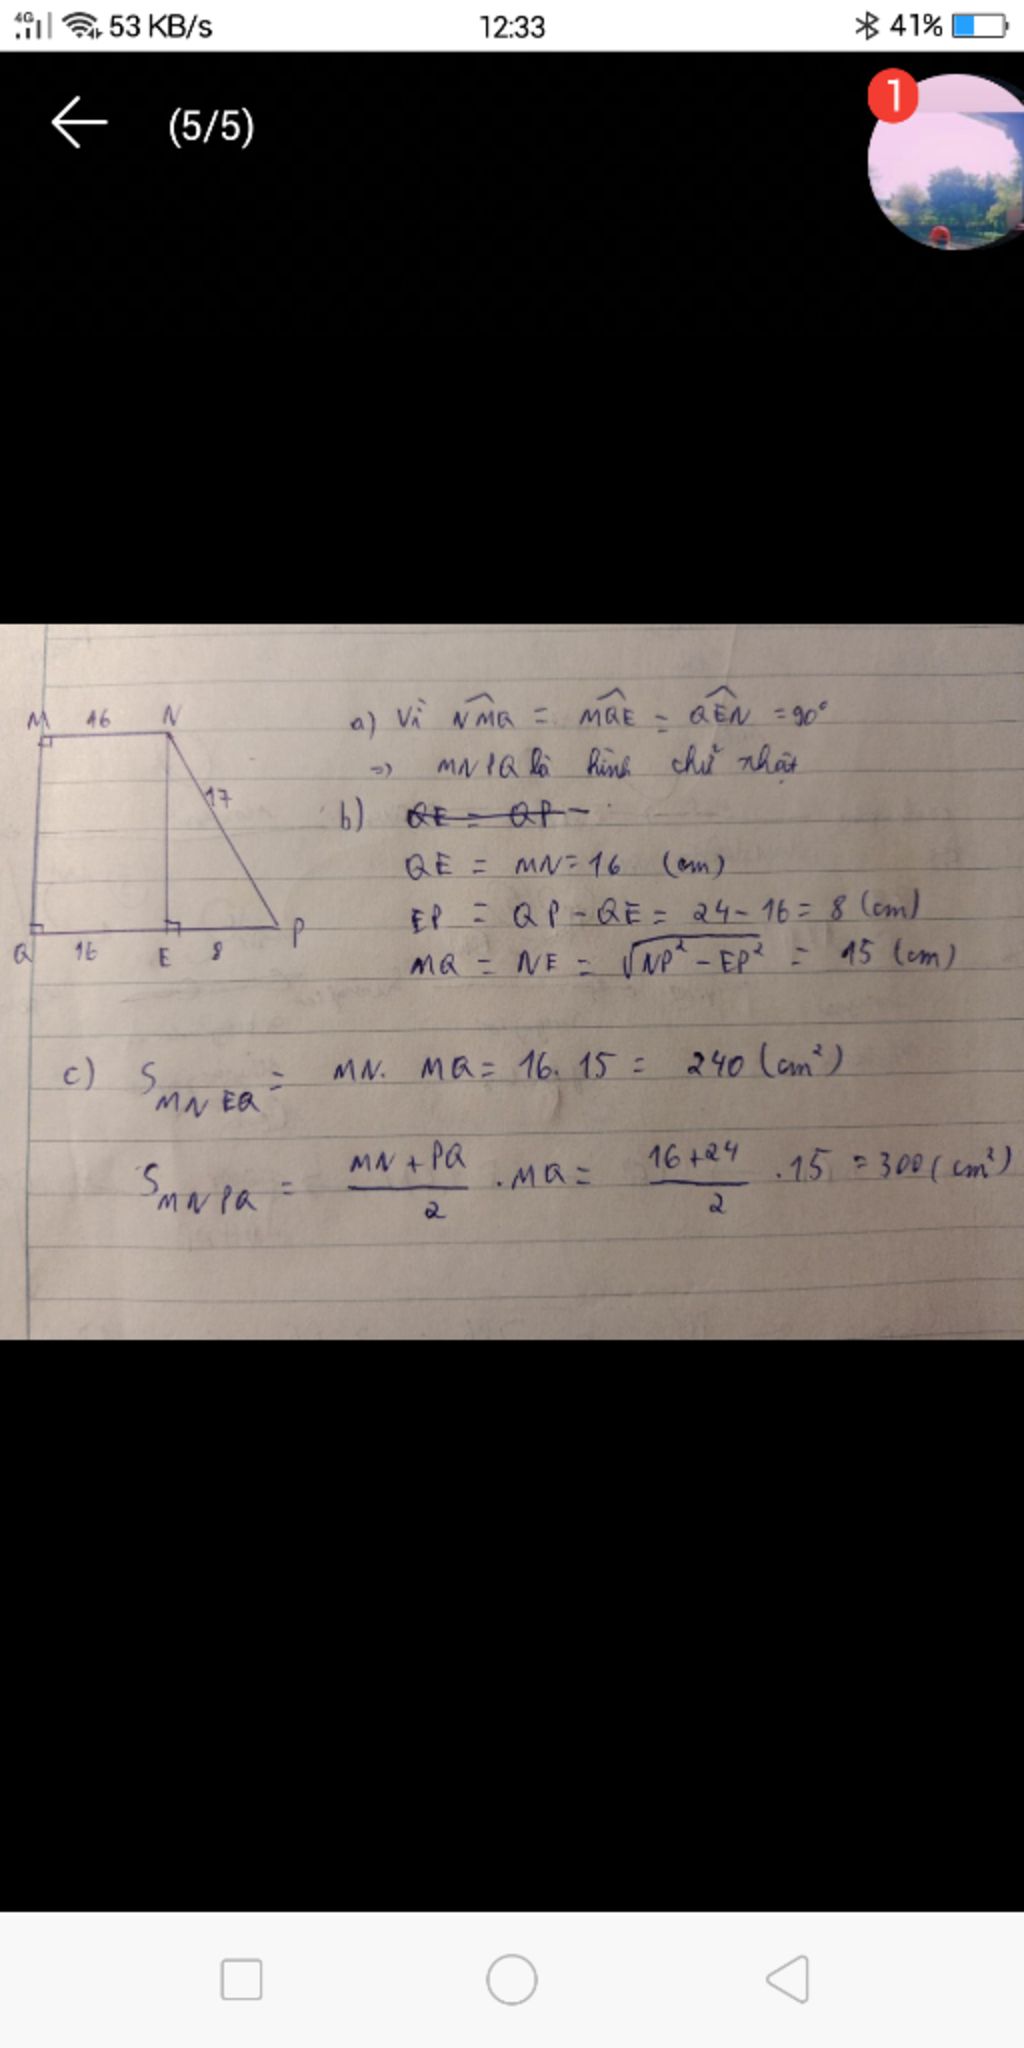 4G 53 KB/s 12:33 41%
(5/5)
1
M 16 N
17
Q 16 E 8 P
a) Vì NMQ = MQE = QEN = 90°
=> MNPQ là hình chữ nhật
b) QE = QP -
QE = MN = 16 (cm)
EP = QP - QE = 24 - 16 = 8 (cm)
MQ = NE = √NP² - EP² = 15 (cm)
c) S MNEQ = MN. MQ = 16. 15 = 240 (cm²)
S MNPQ = MN + PQ / 2 . MQ = 16+24 / 2 . 15 = 300 (cm²)